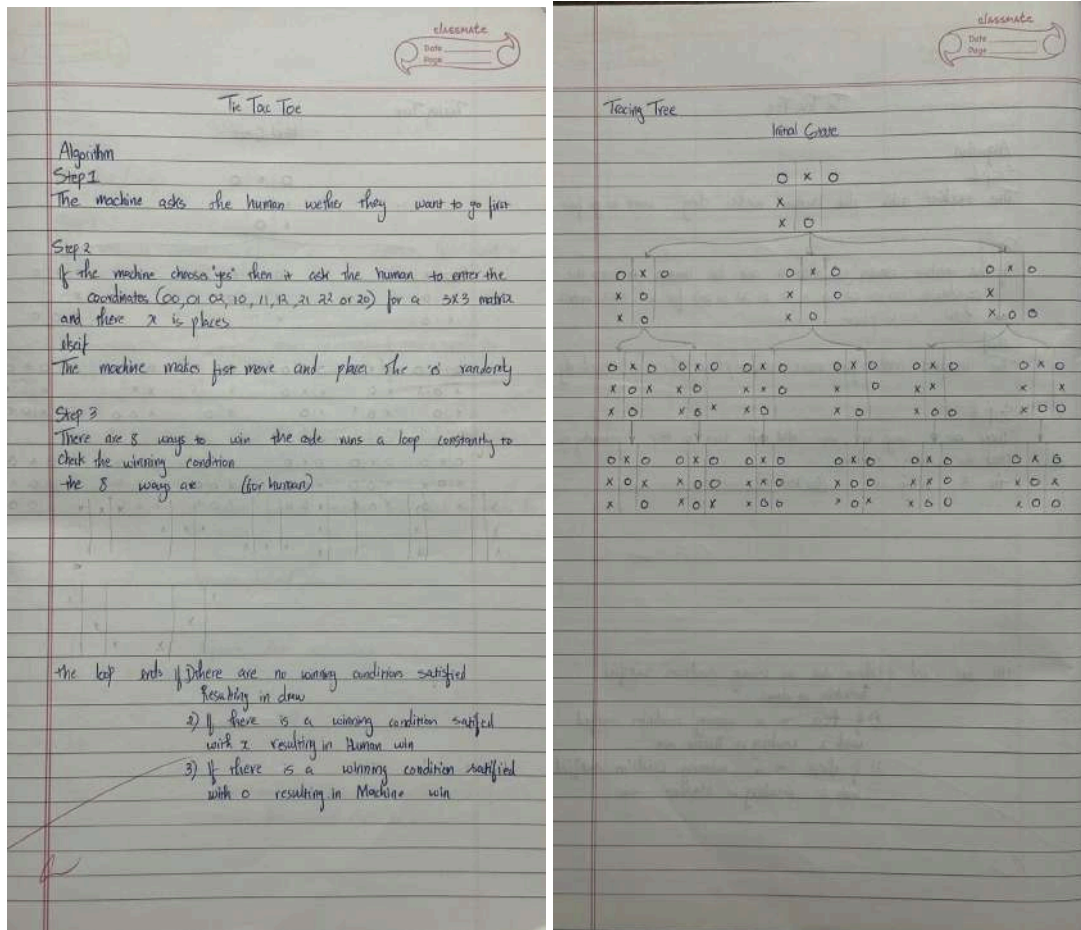 classmate
Date
Page
Tic Tac Toe
Algorithm
Step 1
The machine asks the human wether they want to go first
Step 2
If the machine chooses 'yes' then it ask the human to enter the
coordinates (00,01 02, 10, 11, 12, 21 22 or 20) for a 3X3 matrix
and there x is places
elseif
The machine makes first move and places the 'o' randomly
Step 3
There are 8 ways to win the code runs a loop constantly to
check the winning condition
the 8 ways are (for human)
the loop ends if 1) there are no winning condition satisfied
Resulting in draw
2) If there is a winning condition satified
with x resulting in Human win
3) If there is a winning condition satified
with o resulting in Machine win
classmate
Date
Page
Tracing Tree
Initial State
O X O
X
X O
O X O O X O O X O
X O X O X
X O X O X O O
O X O O X O O X O O X O O X O O X O
X O X X O X X O X O X X X X
X O X O X X O X O X O O X O O
O X O O X O O X O O X O O X O O X O
X O X X O O X X O X O O X X O X O X
X O X O X X O O X O X X O O X O O